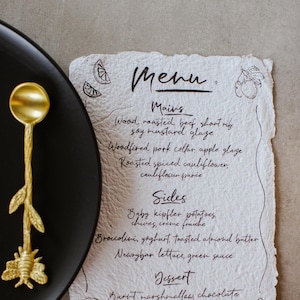 Menu
Mains
Wood roasted beef short rib
soy mustard glaze
Woodfired pork collar apple glaze
Roasted spiced cauliflower
cauliflower puree
Sides
Baby kipfler potatoes
chives, creme fraiche
Broccolini, yoghurt, toasted almond butter
lettuce, green sauce
Dessert
Burnt marshmallow, chocolate